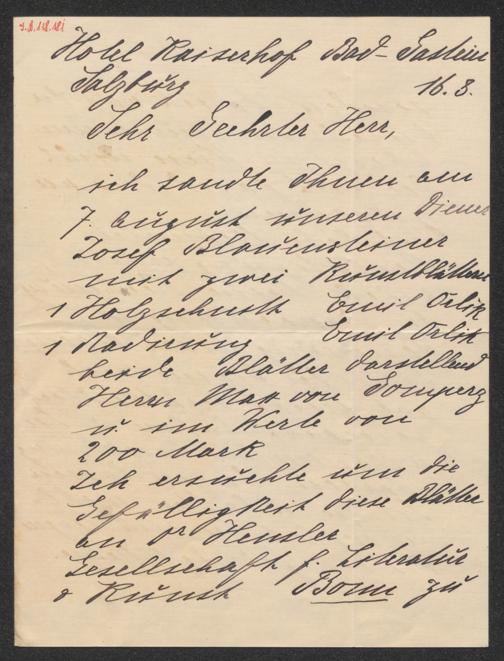 I.N. 118.181
Hotel Kaiserhof Bad-Gastein
Salzburg 16.8.
Sehr Geehrter Herr,
ich sandte Ihnen am
7. august unseren Diener
Josef Blauensteiner
mit zwei Kunstblättern
1 Holzschnitt Emil Orlik
1 Radierung Emil Orlik
beide Blätter darstellend
Herrn Max von Gomperz
u. im Werte von
200 Mark
Ich ersuchte um die
Gefälligkeit diese Blätter
an Dr Hensler
Gesellschaft f. Literatur
& Kunst Bonn zu